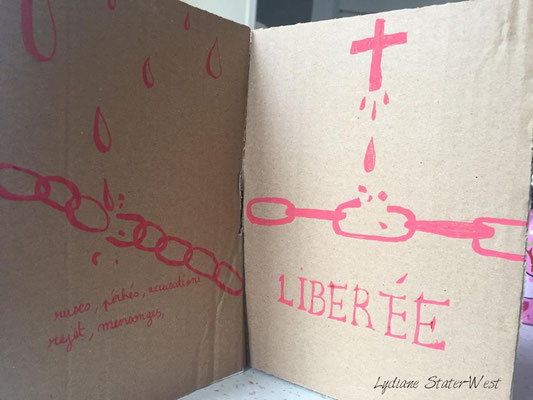 ruses, péchés, accusations
rejet, mensonges,
LIBERÉE
Lydiane Stater-West